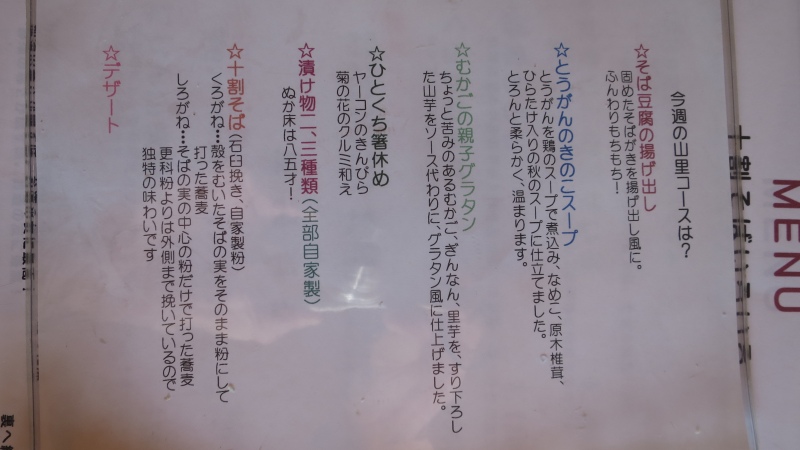 MENU
今週の山里コースは？
☆そば豆腐の揚げ出し
固めたそばがきを揚げ出し風に。
ふんわりもちもち！
☆とうがんのきのこスープ
とうがんを鶏のスープで煮込み、なめこ、原木椎茸、
ひらたけ入りの秋のスープに仕立てました。
とろんと柔らかく、温まります。
☆むかごの親子グラタン
ちょっと苦みのあるむかご、ぎんなん、里芋を、すり下ろし
た山芋をソース代わりに、グラタン風に仕上げました。
☆ひとくち箸休め
ヤーコンのきんぴら
菊の花のクルミ和え
☆漬け物二、三種類（全部自家製）
ぬか床は八五才！
☆十割そば（石臼挽き、自家製粉）
くろがね…殻をむいたそばの実をそのまま粉にして
打った蕎麦
しろがね…そばの実の中心の粉だけで打った蕎麦
更科粉よりは外側まで挽いているので
独特の味わいです
☆デザート